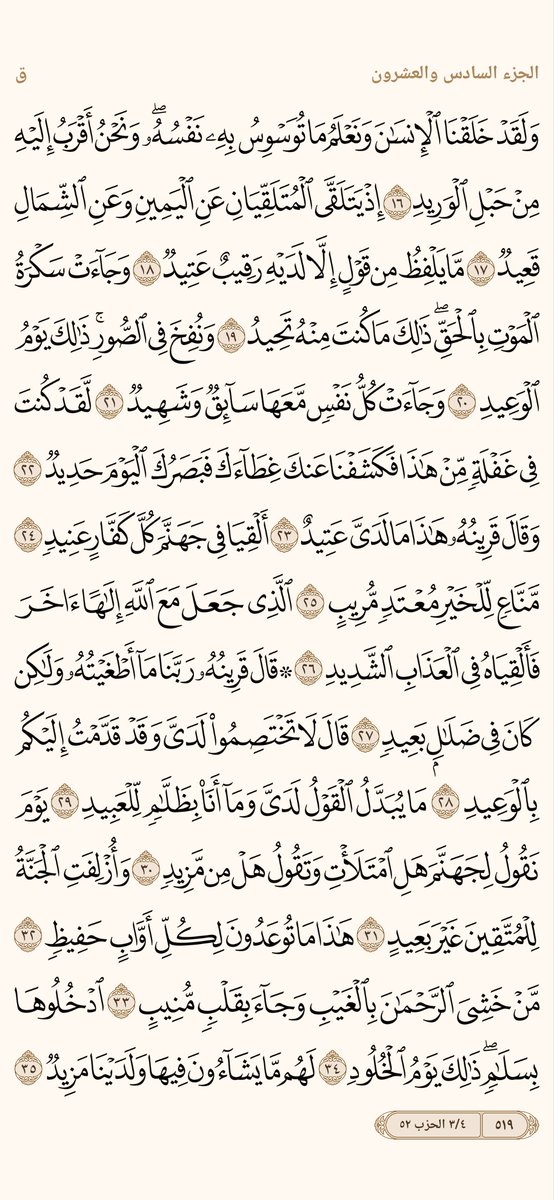 الجزء السادس والعشرون ق
وَلَقَدْ خَلَقْنَا ٱلْإِنسَٰنَ وَنَعْلَمُ مَا تُوَسْوِسُ بِهِۦ نَفْسُهُۥ ۖ وَنَحْنُ أَقْرَبُ إِلَيْهِ
مِنْ حَبْلِ ٱلْوَرِيدِ ١٦ إِذْ يَتَلَقَّى ٱلْمُتَلَقِّيَانِ عَنِ ٱلْيَمِينِ وَعَنِ ٱلشِّمَالِ
قَعِيدٌ ١٧ مَّا يَلْفِظُ مِن قَوْلٍ إِلَّا لَدَيْهِ رَقِيبٌ عَتِيدٌ ١٨ وَجَآءَتْ سَكْرَةُ
ٱلْمَوْتِ بِٱلْحَقِّ ۖ ذَٰلِكَ مَا كُنتَ مِنْهُ تَحِيدُ ١٩ وَنُفِخَ فِى ٱلصُّورِ ۚ ذَٰلِكَ يَوْمُ
ٱلْوَعِيدِ ٢٠ وَجَآءَتْ كُلُّ نَفْسٍ مَّعَهَا سَآئِقٌ وَشَهِيدٌ ٢١ لَّقَدْ كُنتَ
فِى غَفْلَةٍ مِّنْ هَٰذَا فَكَشَفْنَا عَنكَ غِطَآءَكَ فَبَصَرُكَ ٱلْيَوْمَ حَدِيدٌ ٢٢
وَقَالَ قَرِينُهُۥ هَٰذَا مَا لَدَىَّ عَتِيدٌ ٢٣ أَلْقِيَا فِى جَهَنَّمَ كُلَّ كَفَّارٍ عَنِيدٍ ٢٤
مَّنَّاعٍ لِّلْخَيْرِ مُعْتَدٍ مُّرِيبٍ ٢٥ ٱلَّذِى جَعَلَ مَعَ ٱللَّهِ إِلَٰهًا ءَاخَرَ
فَأَلْقِيَاهُ فِى ٱلْعَذَابِ ٱلشَّدِيدِ ٢٦ ۞ قَالَ قَرِينُهُۥ رَبَّنَا مَآ أَطْغَيْتُهُۥ وَلَٰكِن
كَانَ فِى ضَلَٰلٍۭ بَعِيدٍ ٢٧ قَالَ لَا تَخْتَصِمُوا۟ لَدَىَّ وَقَدْ قَدَّمْتُ إِلَيْكُم
بِٱلْوَعِيدِ ٢٨ مَا يُبَدَّلُ ٱلْقَوْلُ لَدَىَّ وَمَآ أَنَا۠ بِظَلَّٰمٍ لِّلْعَبِيدِ ٢٩ يَوْمَ
نَقُولُ لِجَهَنَّمَ هَلِ ٱمْتَلَأْتِ وَتَقُولُ هَلْ مِن مَّزِيدٍ ٣٠ وَأُزْلِفَتِ ٱلْجَنَّةُ
لِلْمُتَّقِينَ غَيْرَ بَعِيدٍ ٣١ هَٰذَا مَا تُوعَدُونَ لِكُلِّ أَوَّابٍ حَفِيظٍ ٣٢
مَّنْ خَشِىَ ٱلرَّحْمَٰنَ بِٱلْغَيْبِ وَجَآءَ بِقَلْبٍ مُّنِيبٍ ٣٣ ٱدْخُلُوهَا
بِسَلَٰمٍ ۖ ذَٰلِكَ يَوْمُ ٱلْخُلُودِ ٣٤ لَهُم مَّا يَشَآءُونَ فِيهَا وَلَدَيْنَا مَزِيدٌ ٣٥
٥١٩ ٣/٤ الحزب ٥٢